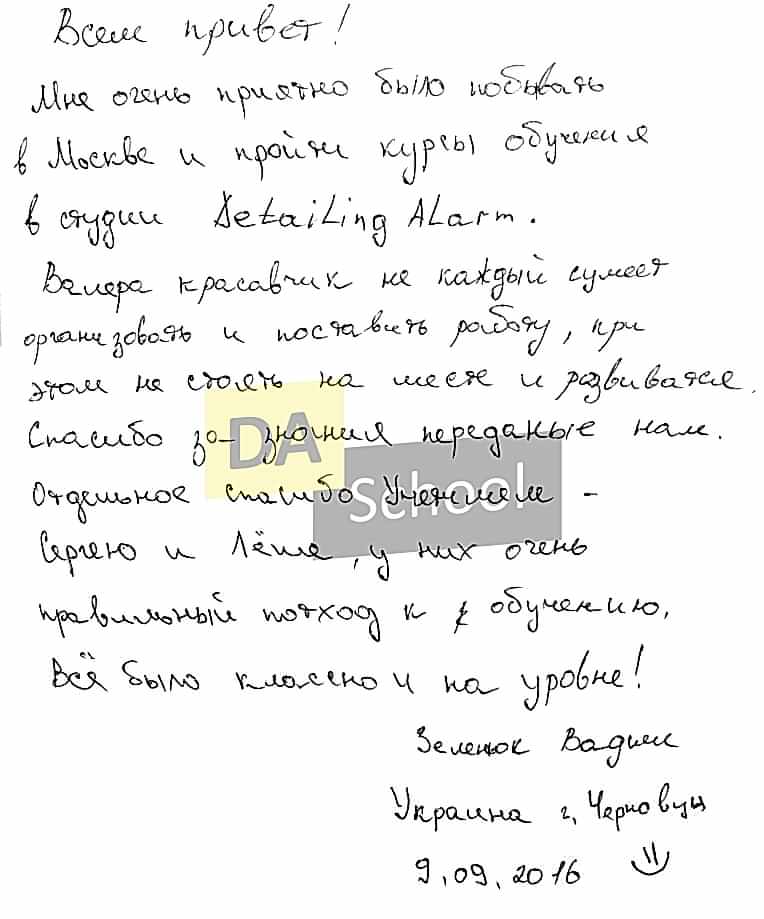 Всем привет!
Мне очень приятно было побывать
в Москве и пройти курсы обучения
в студии Detailing ALarm.
Валера красавчик не каждый сумеет
организовать и поставить работу, при
этом не стоять на месте и развиватся.
Спасибо за знания переданые нам.
DA
School
Отдельное спасибо Учителем -
Сергею и Лёше, у них очень
правильный подход к обучению,
Всё было классно и на уровне!
Зеленюк Вадим
Украина г. Черновцы
9.09.2016